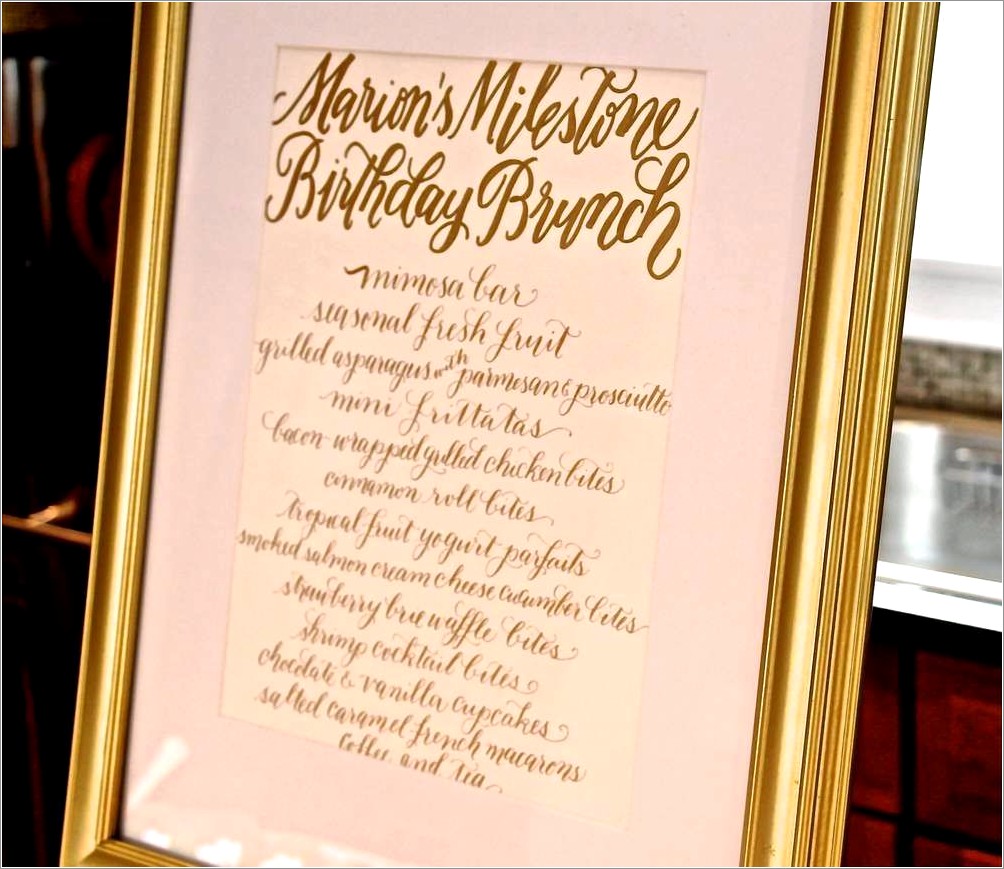 Marion's Milestone
Birthday Brunch
mimosa bar
seasonal fresh fruit
grilled asparagus with parmesan & prosciutto
mini frittatas
bacon-wrapped grilled chicken bites
cinnamon roll bites
tropical fruit yogurt parfaits
smoked salmon cream cheese cucumber bites
strawberry brie waffle bites
shrimp cocktail bites
chocolate & vanilla cupcakes
salted caramel french macarons
coffee and tea